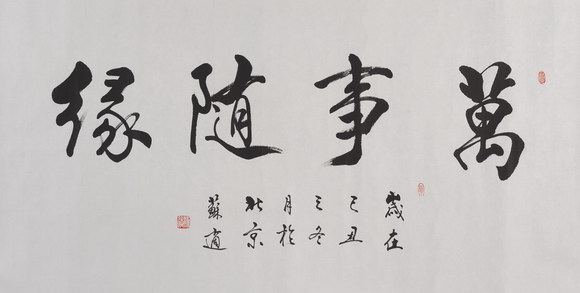 萬事随緣
歲在
己丑
之冬
月於
北京
蘇適